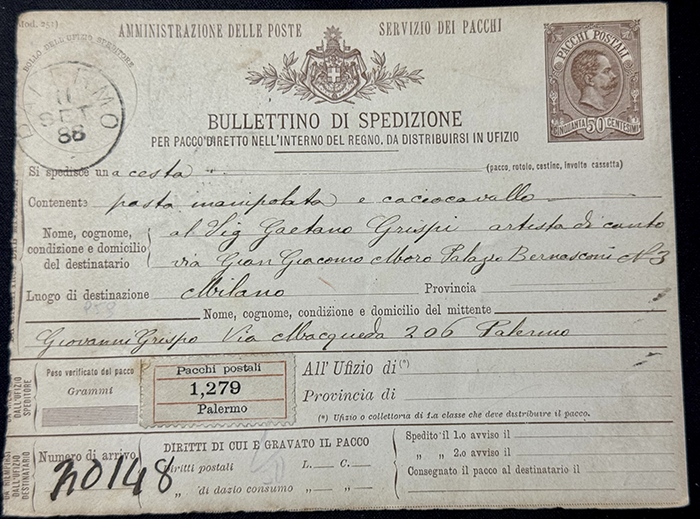 Mod. 251)
AMMINISTRAZIONE DELLE POSTE SERVIZIO DEI PACCHI
BOLLO DELL'UFIZIO SPEDITORE
PALERMO
11
SET
88
PACCHI POSTALI
CINQUANTA 50 CENTESIMI
BULLETTINO DI SPEDIZIONE
PER PACCO DIRETTO NELL'INTERNO DEL REGNO, DA DISTRIBUIRSI IN UFIZIO
Si spedisce una cesta (pacco, rotolo, cestino, involto cassetta)
Contenente pasta manipolata e caciocavallo
Nome, cognome, condizione e domicilio del destinatario
al Sig Gaetano Crispi artista di canto
via Gian Giacomo Moro Palazzo Bernasconi N 3
Luogo di destinazione Milano Provincia
Nome, cognome, condizione e domicilio del mittente
Giovanni Crispo Via Macqueda 206 Palermo
DALL'UFIZIO
SPEDITORE
Peso verificato del pacco
Grammi
Pacchi postali
1,279
Palermo
All'Ufizio di (*)
Provincia di
(*) Ufizio o collettoria di 1.a classe che deve distribuire il pacco.
DA RIEMPIRSI
DALL'UFIZIO
DESTINATARIO
Numero di arrivo
20148
DIRITTI DI CUI È GRAVATO IL PACCO
Diritti postali L. C.
„ di dazio consumo „ „
Spedito il 1.o avviso il
„ „ 2.o avviso il
Consegnato il pacco al destinatario il